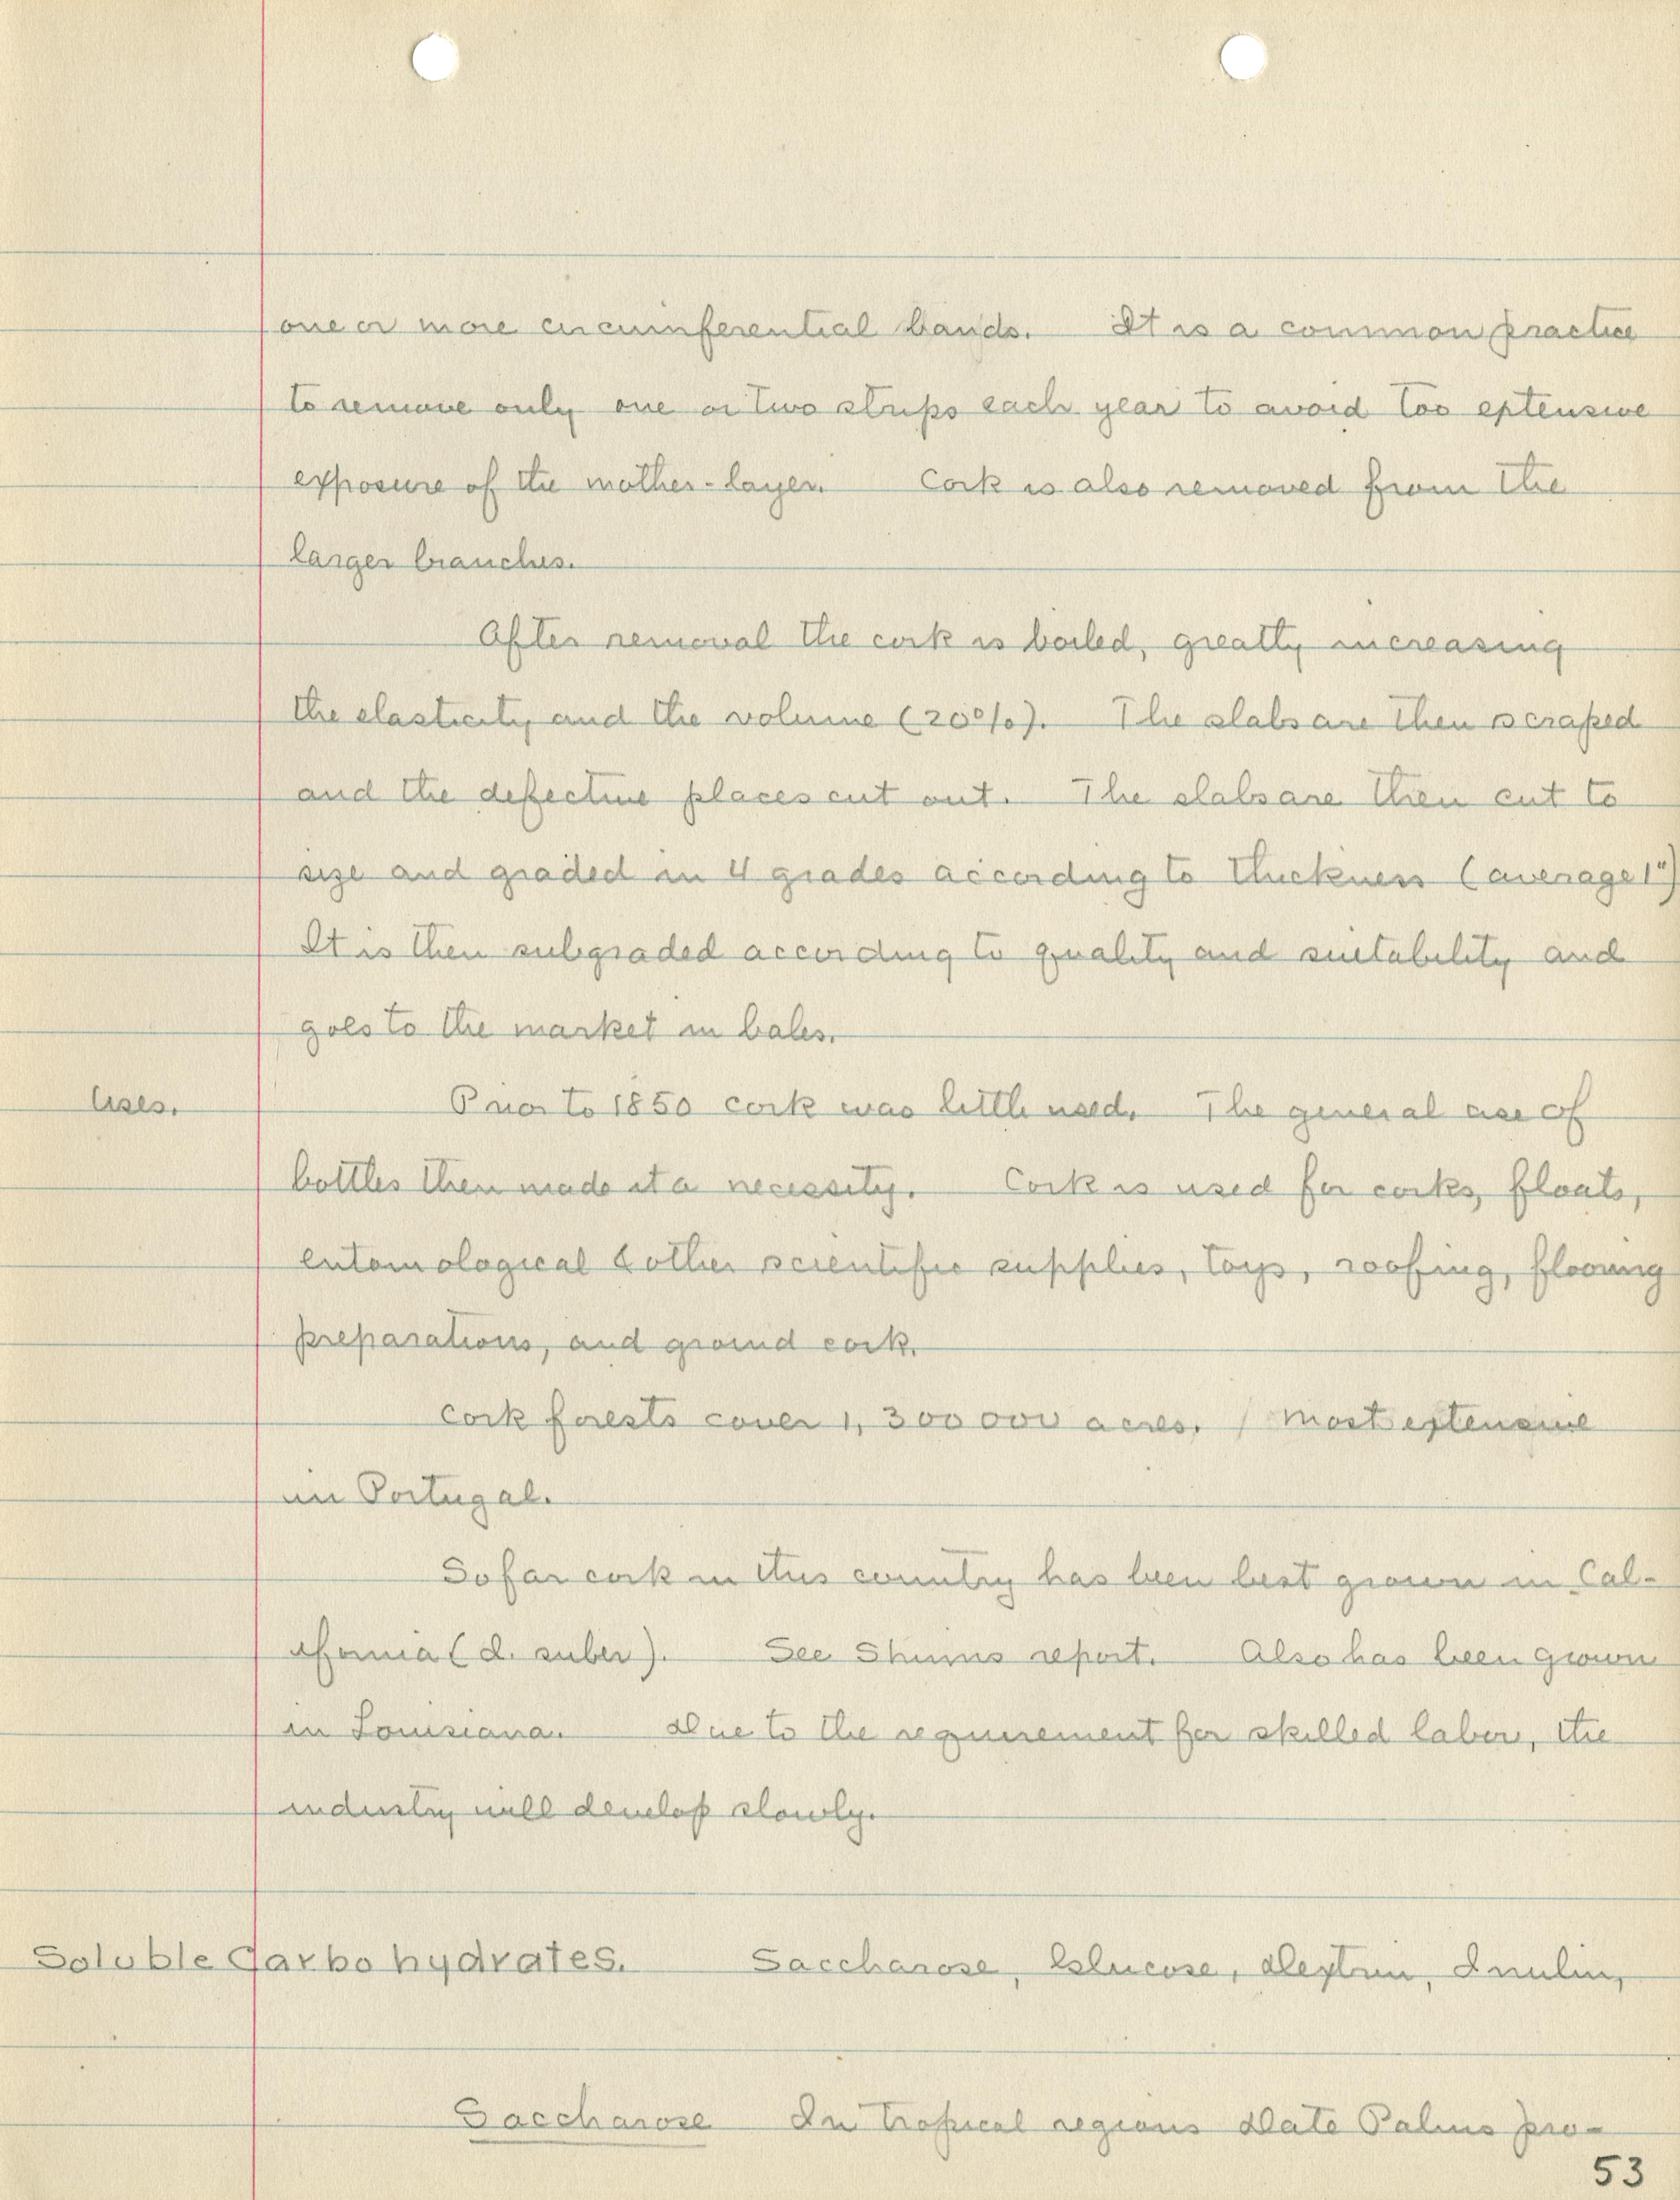 one or more circumferential bands. It is a common practice
to remove only one or two strips each year to avoid too extensive
exposure of the mother-layer. Cork is also removed from the
larger branches.
After removal the cork is boiled, greatly increasing
the elasticity and the volume (20%). The slabs are then scraped
and the defective places cut out. The slabs are then cut to
size and graded in 4 grades according to thickness (average 1")
It is then subgraded according to quality and suitability and
goes to the market in bales.
Uses. Prior to 1850 cork was little used. The general use of
bottles then made it a necessity. Cork is used for corks, floats,
entomological & other scientific supplies, toys, roofing, flooring
preparations, and ground cork.
Cork forests cover 1,300 000 acres. / Most extensive
in Portugal.
So far cork in this country has been best grown in Cal-
ifornia ( suber). See report. Also has been grown
in Louisiana. Due to the requirement for skilled labor, the
industry will develop slowly.
Soluble Carbohydrates. Saccharose, Glucose, Dextrin, Inulin,
Saccharose In tropical regions Date Palms pro-
53